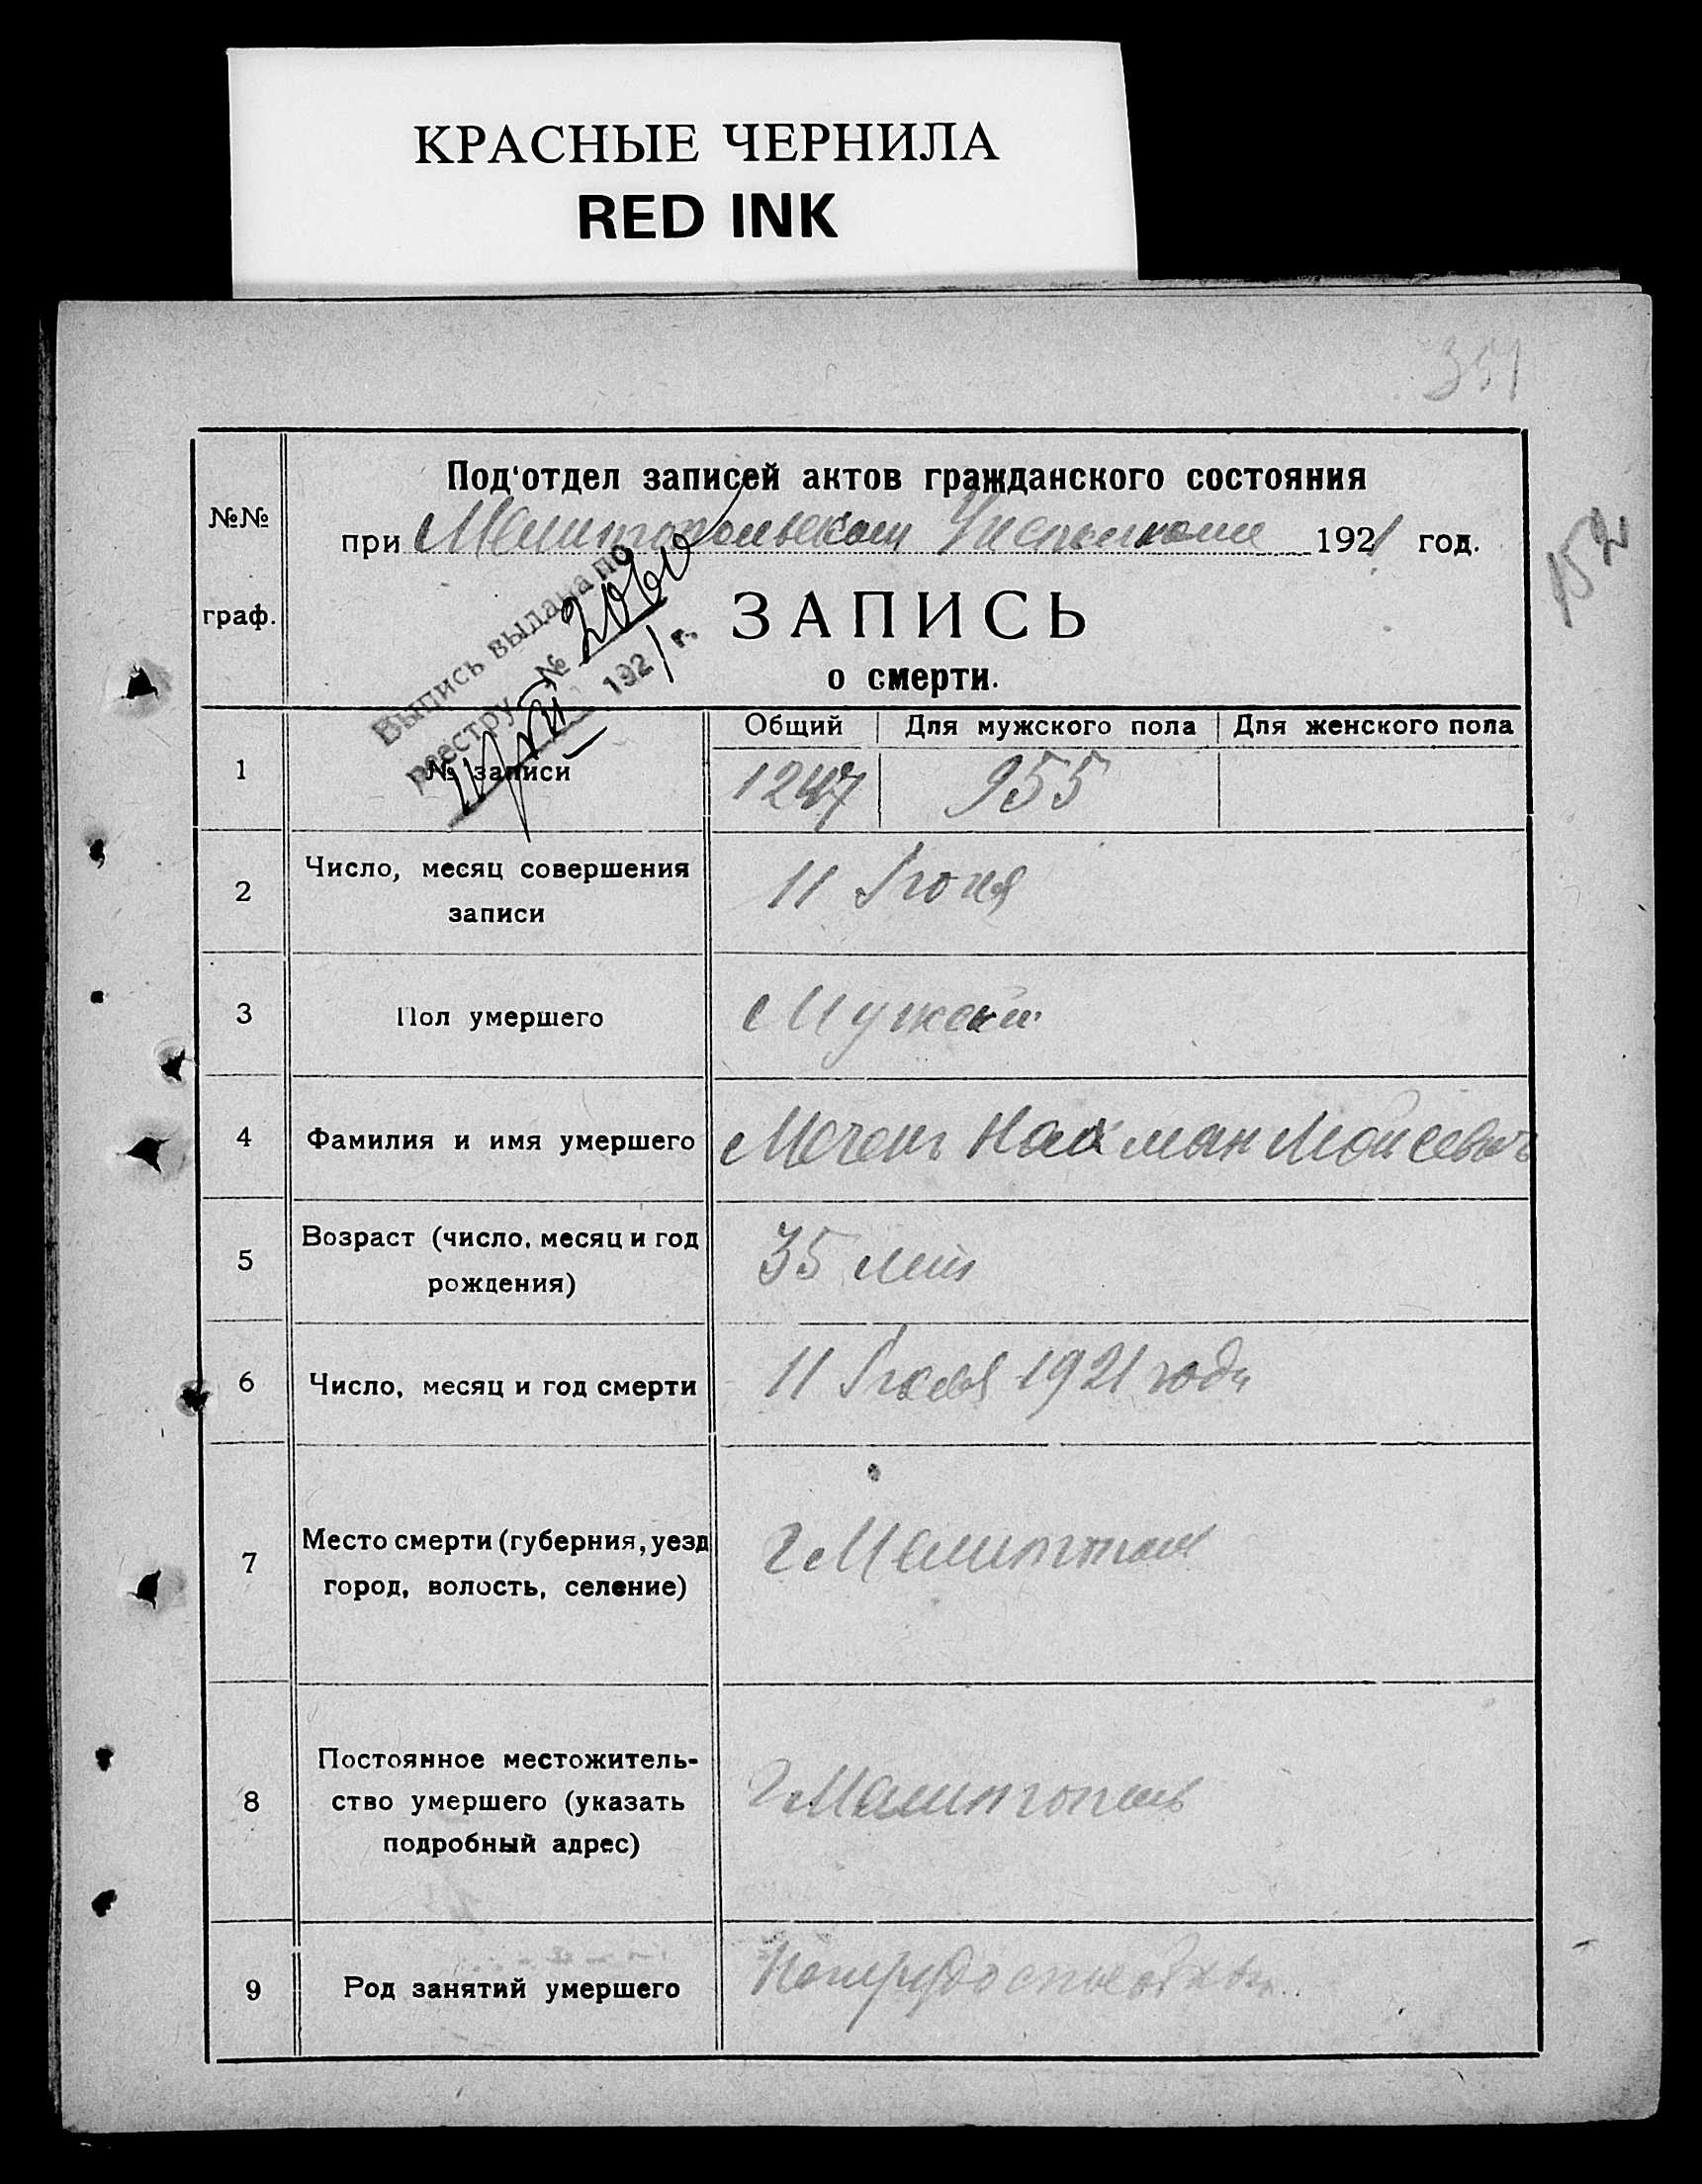 КРАСНЫЕ ЧЕРНИЛА
RED INK
351
№№
граф.
Под'отдел записей актов гражданского состояния
при Мелитопольском 1921 год.
152
ЗАПИСЬ
о смерти.
Выпись выдана по
реестру № 2060
1921 г.
Общий Для мужского пола Для женского пола
1 № записи 1247 955
2 Число, месяц совершения
записи
11 Июня
3 Пол умершего Мужской
4 Фамилия и имя умершего Нахман Моисеевич
5 Возраст (число, месяц и год
рождения)
35 лет
6 Число, месяц и год смерти 11 1921 года
7 Место смерти (губерния, уезд
город, волость, селение)
г Мелитополь
8 Постоянное местожитель-
ство умершего (указать
подробный адрес)
г Мелитополь
9 Род занятий умершего